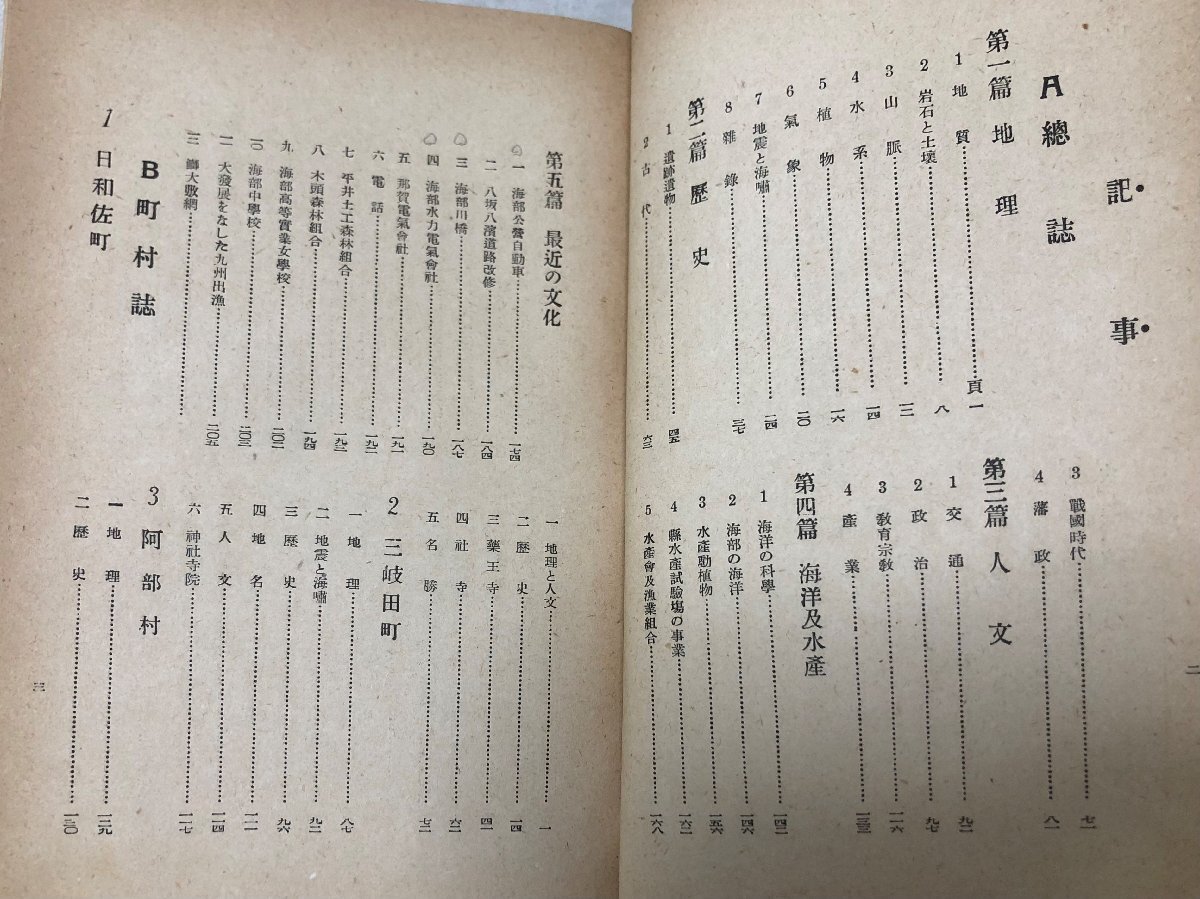 記事
A 總誌
第一篇 地理
頁
1 地質……一
2 岩石と土壤……八
3 山脈……一一
4 水系……一四
5 植物……一六
6 氣象……二〇
7 地震と海嘯……二四
8 雜錄……三七
第二篇 歷史
1 遺跡遺物……四五
2 古代……六三
3 戰國時代……七一
4 藩政……八一
第三篇 人文
1 交通……九二
2 政治……九七
3 敎育宗敎……一一六
4 產業……一三三
第四篇 海洋及水產
1 海洋の科學……一四二
2 海部の海洋……一四六
3 水產動植物……一五六
4 縣水產試驗場の事業……一六二
5 水產會及漁業組合……一六八
二
第五篇 最近の文化
一 海部公營自動車……一七四
二 八坂八濱道路改修……一八四
三 海部川橋……一八七
四 海部水力電氣會社……一九〇
五 那賀電氣會社……一九一
六 電話……一九二
七 平井土工森林組合……一九三
八 木頭森林組合……一九四
九 海部高等實業女學校……二〇二
一〇 海部中學校……二〇三
一一 大發展をなした九州出漁……二〇五
一二 鰤大敷網……
B 町村誌
1 日和佐町
一 地理と人文……一
二 歷史……一四
三 藥王寺……四一
四 社寺……六二
五 名勝……七二
2 三岐田町
一 地理……八七
二 地震と海嘯……九二
三 歷史……九六
四 地名……一一一
五 人文……一一四
六 神社寺院……一一七
3 阿部村
一 地理……一二九
二 歷史……一三〇
三